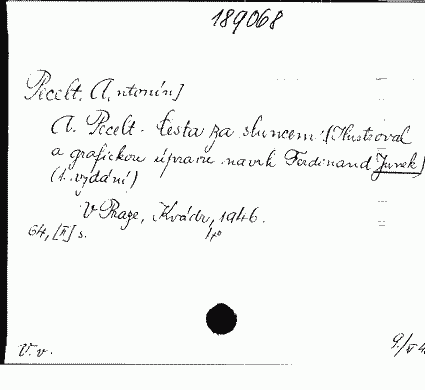 189068
Pecelt, A[ntonín]
A. Pecelt. Cesta za sluncem. [Ilustroval
a grafickou úpravu navrh. Ferdinand Jurek]
(1. vydání)
V Praze, Kvádr, 1946.
64, [II] s. 4°
V. v. 9./V 4